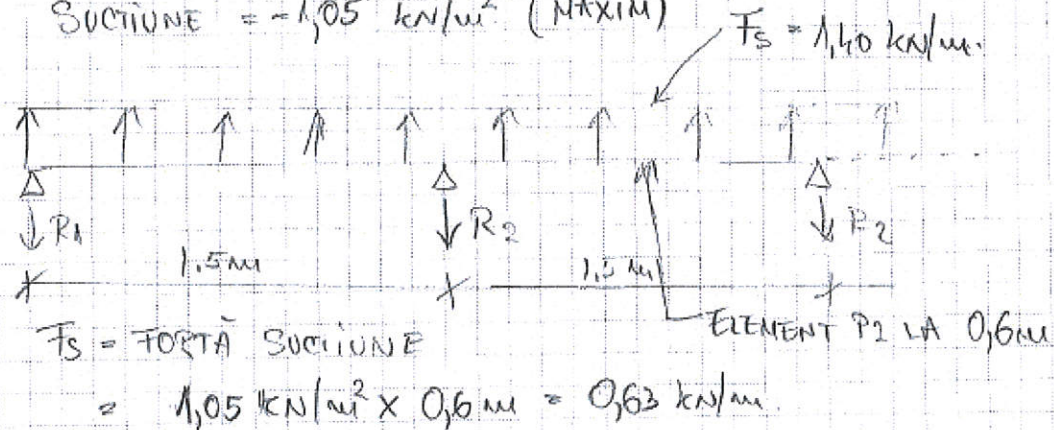 SUCTIUNE = -1,05 kN/m² (MAXIM)
Fs = 1,40 kN/m.
R1
R2
R2
1.5m
1.5m
ELEMENT P2 LA 0,6m
Fs = FORTĂ SUCTIUNE
= 1,05 kN/m² x 0,6 m = 0,63 kN/m.